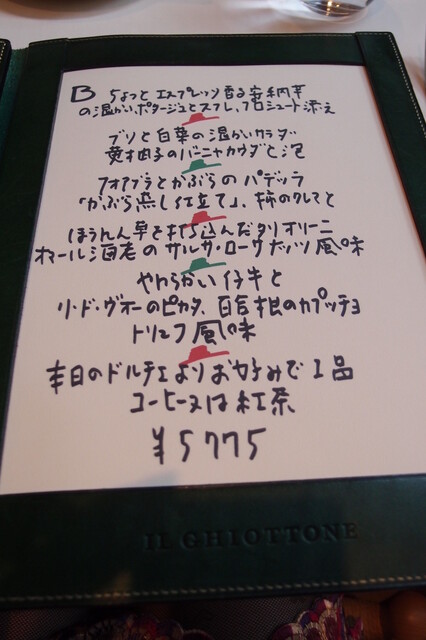 B ちょっとエスプレッソ香る安納芋
の温かいポタージュとスフレ、プロシュート添え
ブリと白菜の温かいサラダ
黄柚子のバーニャカウダと泡
フォアグラとかぶらのパデッラ
「かぶら蒸し仕立て」、柿のクレマと
ほうれん草を打ち込んだタリオリーニ
オマール海老のサルサ・ローザ ナッツ風味
やわらかい仔牛と
リ・ド・ヴォーのピカタ、百合根のカプッチョ
トリュフ風味
本日のドルチェよりお好みで1品
コーヒー又は紅茶
¥5775
IL GHIOTTONE